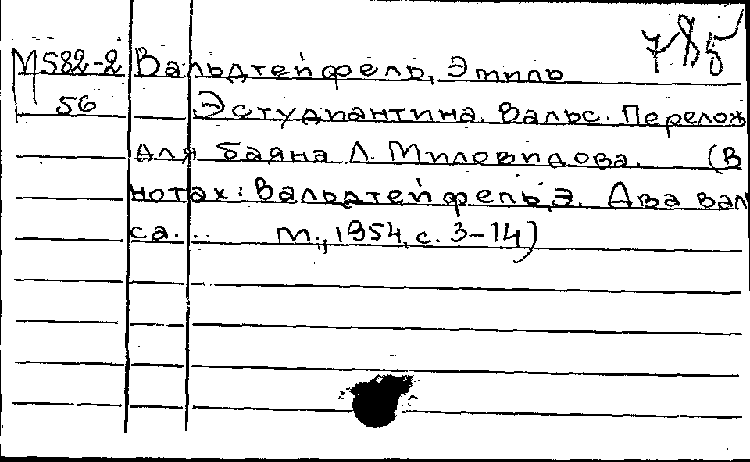 785
М582-2 Вальдтейфель, Эмиль
56 Эстудиантина. Вальс. Перелож
для баяна Л. Миловидова. (В
нотах: Вальдтейфель, Э. Два валь
са... М., 1954, с. 3-14)